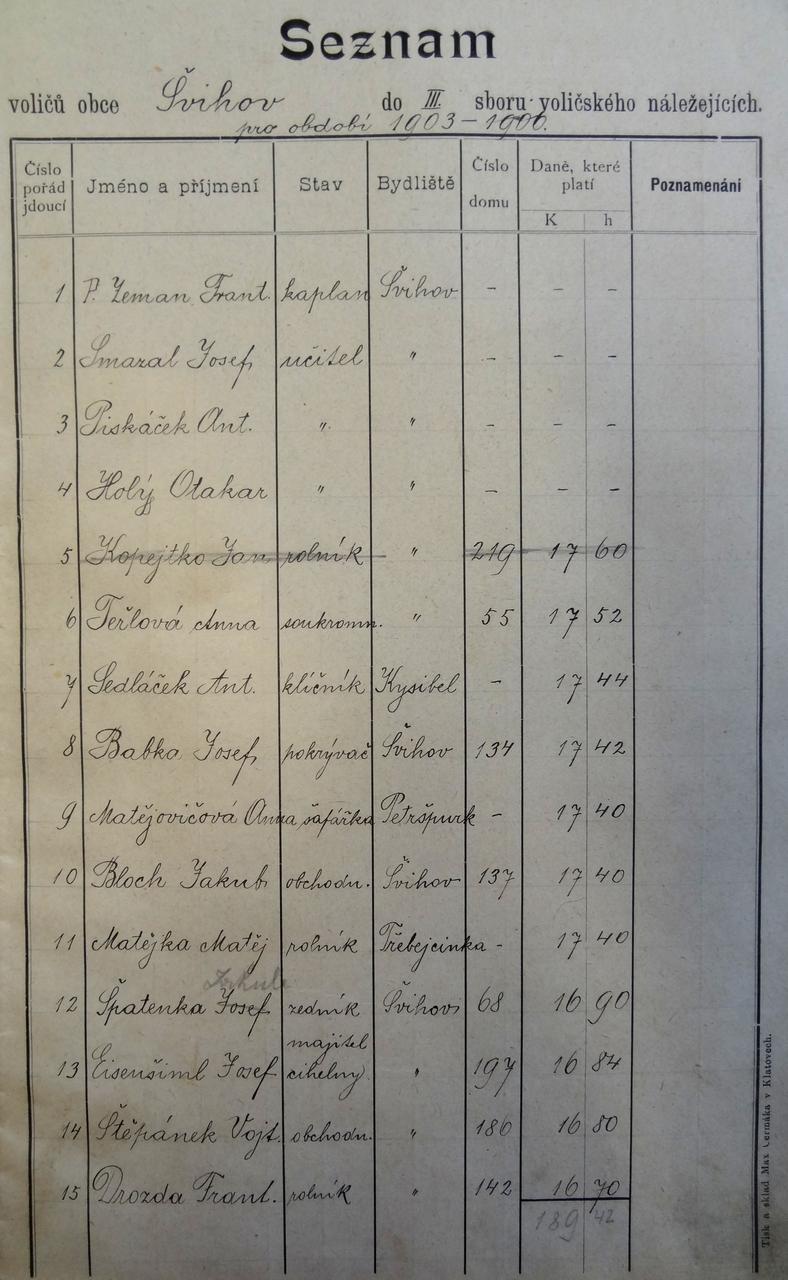 Seznam
voličů obce Švihov do III. sboru voličského náležejících.
pro období 1903 – 1906.
Číslo pořád jdoucí Jméno a příjmení Stav Bydliště Číslo domu Daně, které platí K h Poznamenání
1 P. Zeman Frant. kaplan Švihov - - -
2 Smazal Josef učitel " - - -
3 Piskáček Ant. " " - - -
4 Holý Otakar " " - - -
5 Kopejtko Jan rolník " 219 17 60
6 Teřlová Anna soukromn. " 55 17 52
7 Sedláček Ant. klíčník Kysibel - 17 44
8 Babka Josef pokrývač Švihov 134 17 42
9 Matějovičová Anna šafářka Petršpurk - 17 40
10 Bloch Jakub obchodn. Švihov 137 17 40
11 Matějka Matěj rolník Třebejcinka - 17 40
12 Špatenka Josef zedník Švihov 68 16 90
13 Eisenšiml Josef majitel cihelny " 197 16 84
14 Štěpánek Vojt. obchodn. " 186 16 80
15 Drozda Frant. rolník " 142 16 70
189 42
Tisk a sklad Max Čermáka v Klatovech.